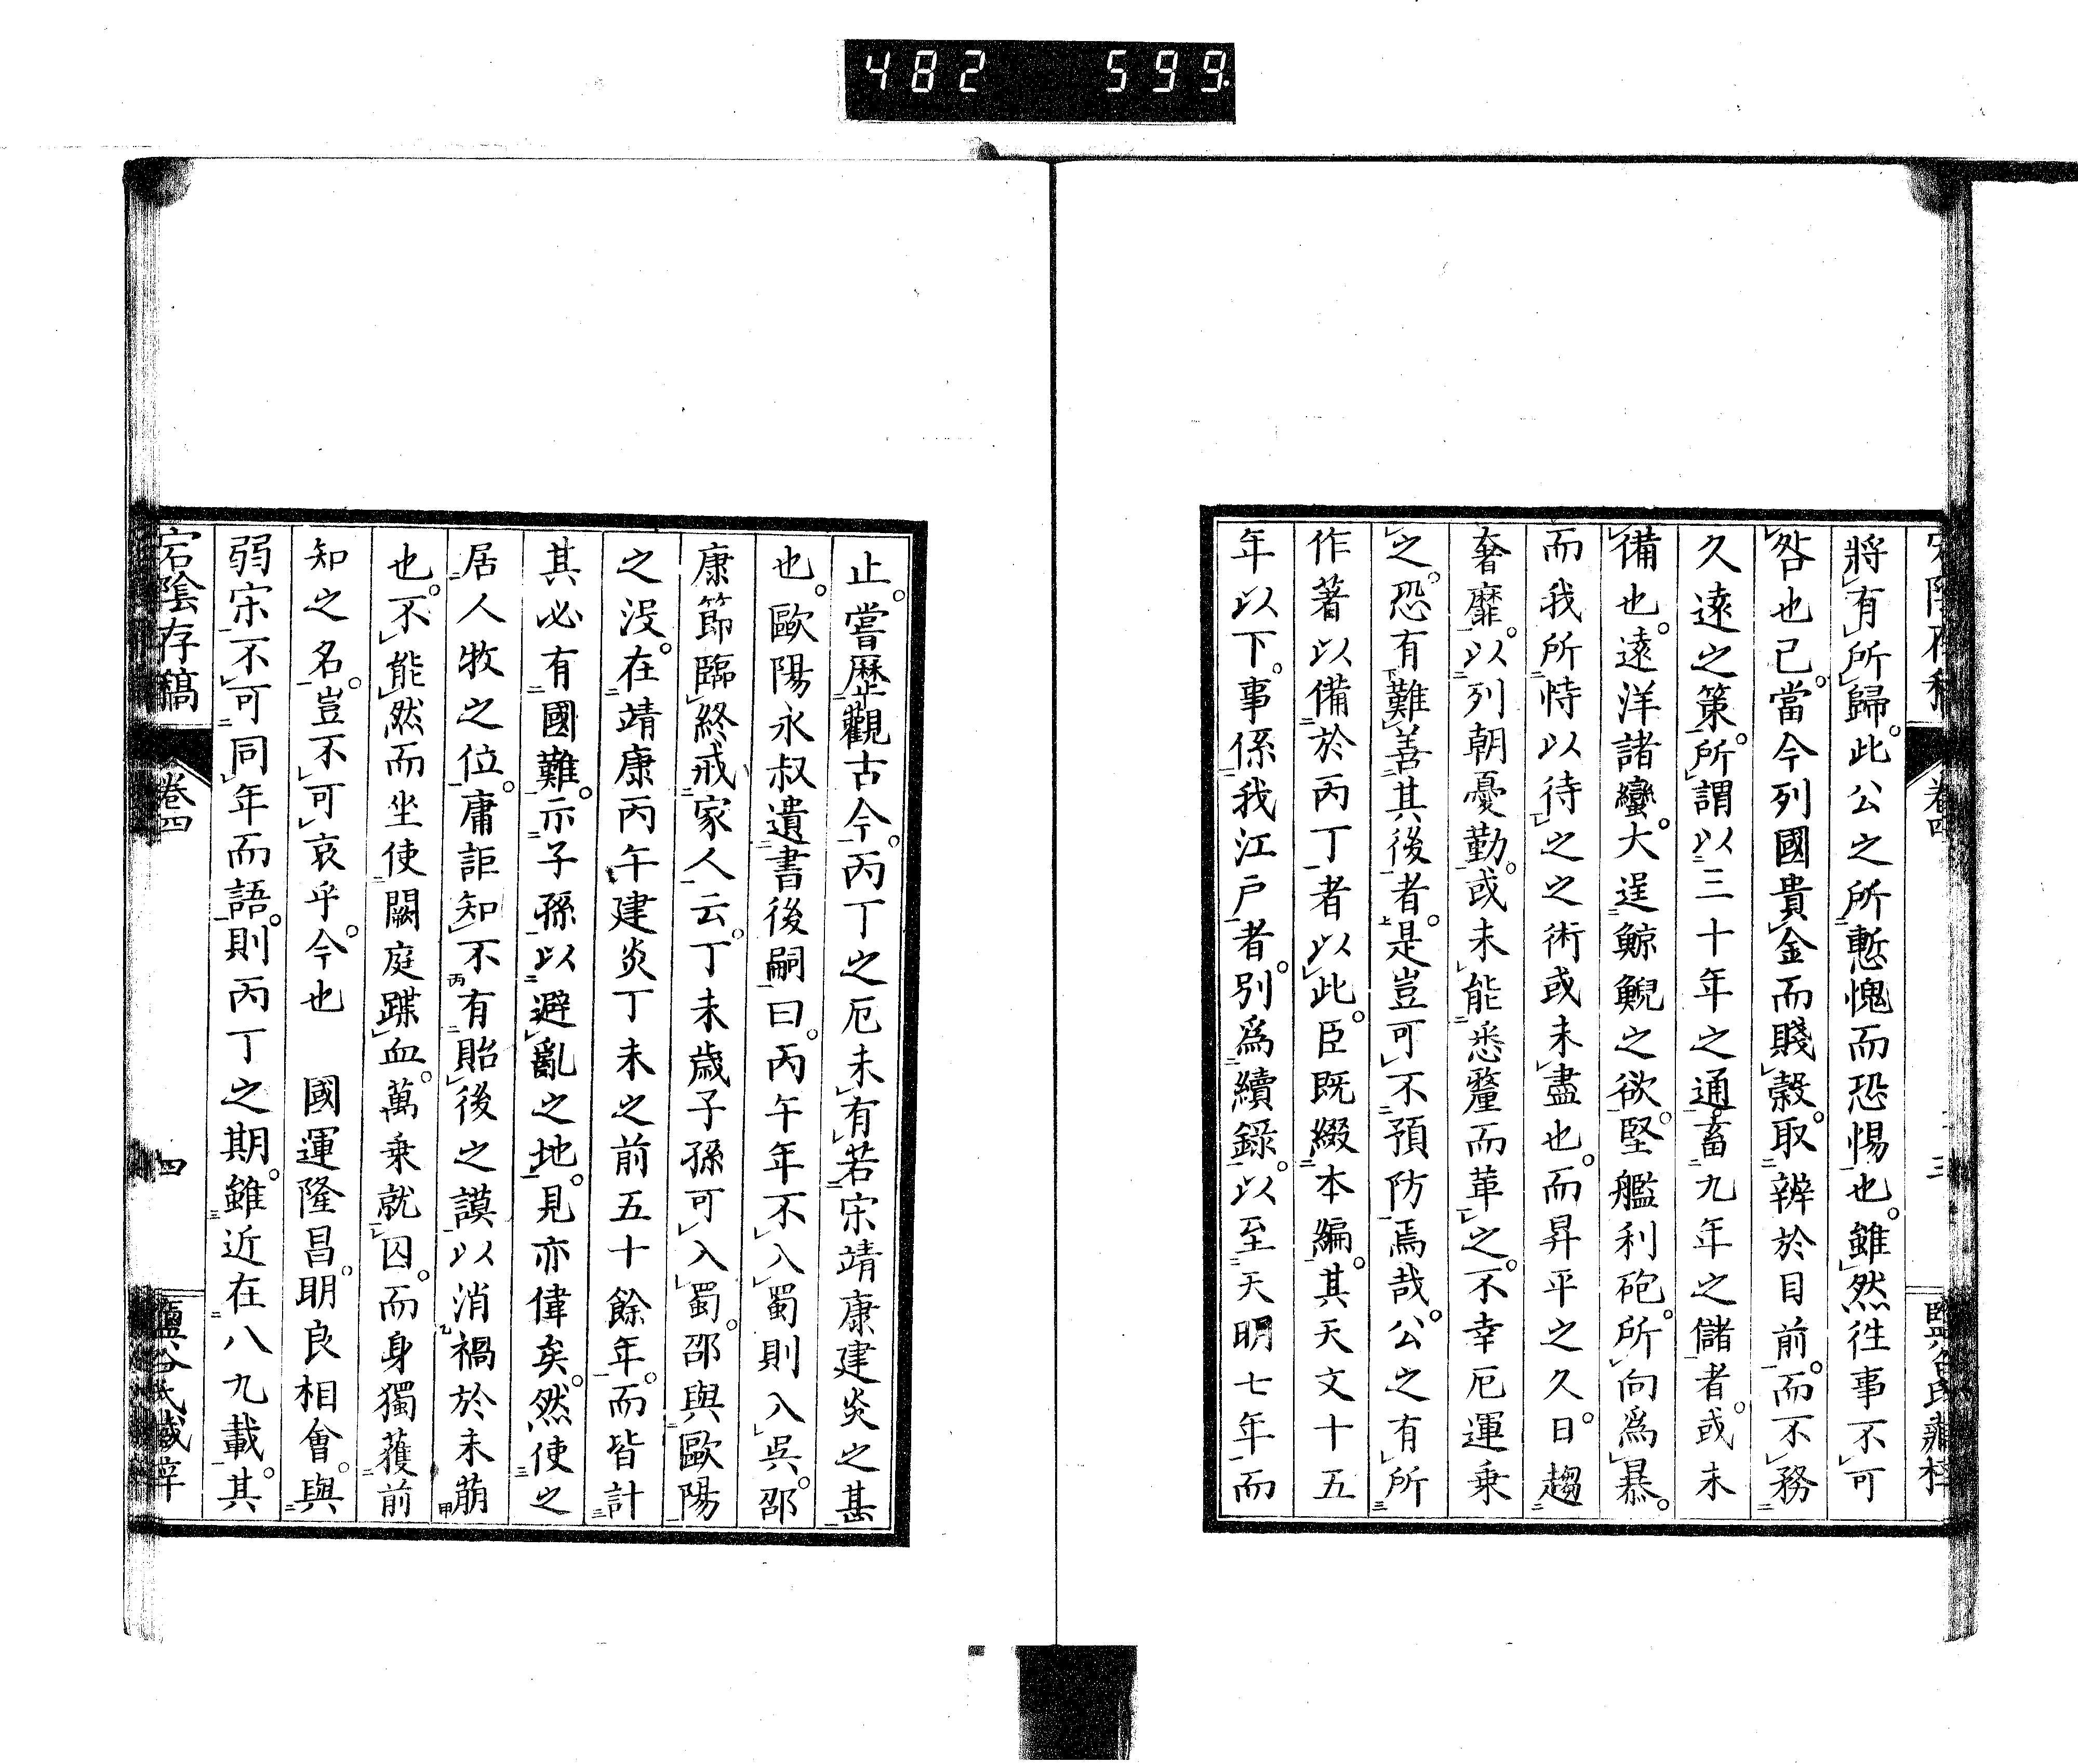 482 599
將有所歸此公之所慙愧而恐惕也雖然徃事不可
咎也已當今列國貴金而賤穀取辨於目前而不務
久遠之策所謂以三十年之通畜九年之儲者或未
備也遠洋諸蠻大逞鯨鯢之欲堅艦利砲所向爲暴
而我所恃以待之之術或未盡也而昇平之久日趨
奢靡以列朝憂勤或未能悉釐而革之不幸厄運乗
之恐有難善其後者是豈可不預防焉哉公之有所
作著以備於丙丁者以此臣既綴本編其天文十五
年以下事係我江戸者別爲續錄以至天明七年而
止嘗歷觀古今丙丁之厄未有若宋靖康建炎之甚
也歐陽永叔遺書後嗣曰丙午年不入蜀則入呉邵
康節臨終戒家人云丁未歳子孫可入蜀邵與歐陽
之没在靖康丙午建炎丁未之前五十餘年而皆計
其必有國難示子孫以避亂之地見亦偉矣然使之
居人牧之位庸詎知不有貽後之謨以消禍於未萠
也不能然而坐使闕庭蹀血萬乗就囚而身獨蒦前
知之名豈不可哀乎今也 國運隆昌明良相會與
弱宋不可同年而語則丙丁之期雖近在八九載其
宕陰存稿 卷四 四 鹽谷氏藏梓